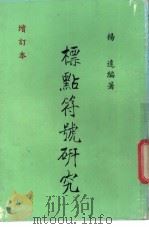 楊遠編著
標點符號研究
增訂本